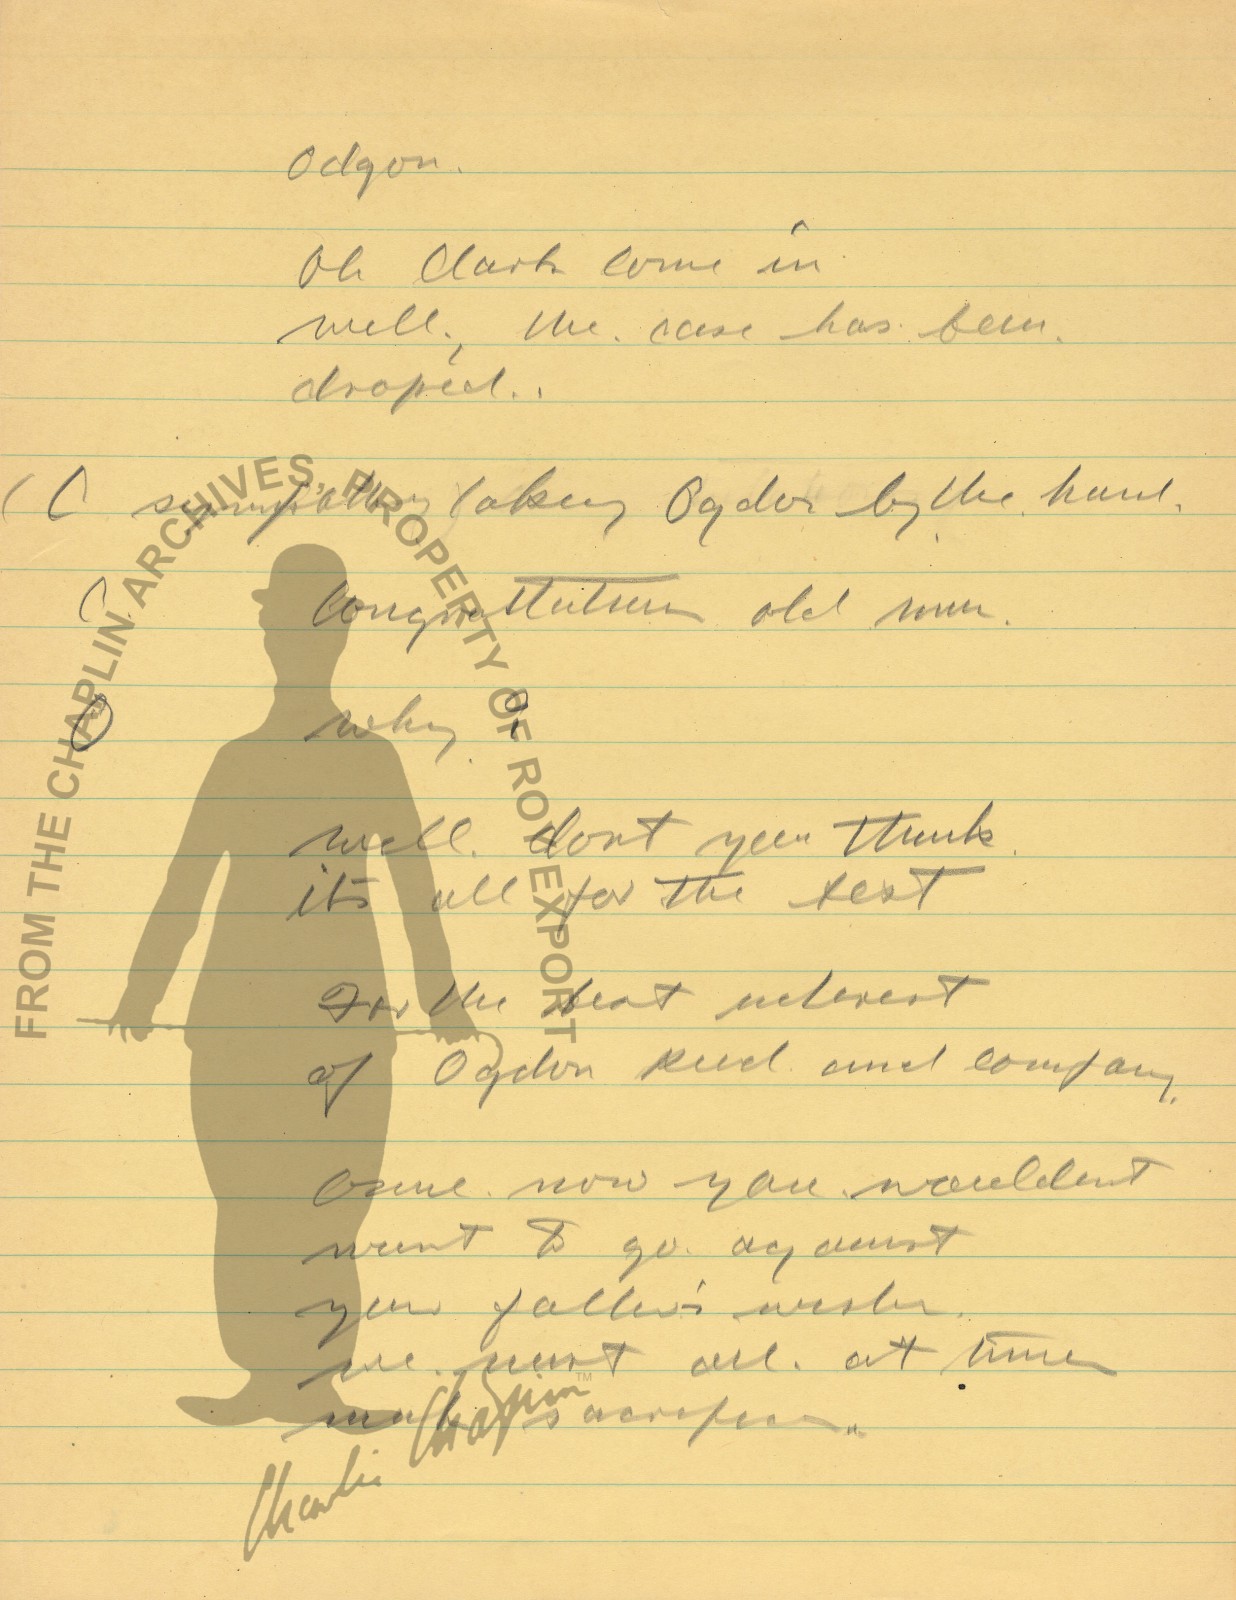 Odgon.
Oh Clark come in
well, the case has been
droped..
(C sympathy taking Ogdon by the hand.
C Congratulations old man.
O why.
well. dont you think
its all for the best
For the best interest
of Ogdon and company.
Come now you wouldent
want to go against
your father's wishes.
we must all at times
make sacrifices..
FROM THE CHAPLIN ARCHIVES, PROPERTY OF ROY EXPORT
TM
Charlie Chaplin